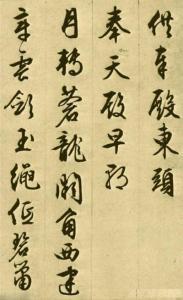 供奉殿東頭
奉天殿早朝
月轉蒼龍闕角西建
章雲斂玉繩低碧簫